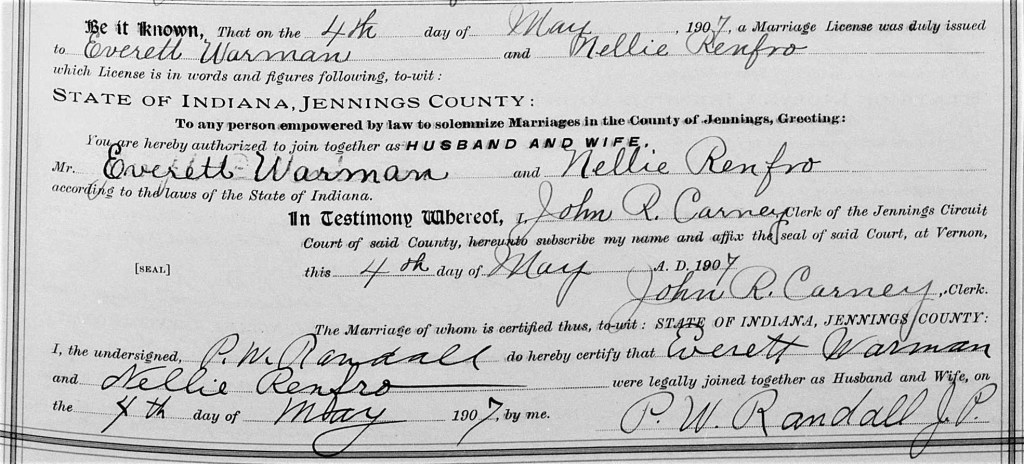 Be it known, That on the 4th day of May, 1907, a Marriage License was duly issued
to Everett Warman and Nellie Renfro
which License is in words and figures following, to-wit:
STATE OF INDIANA, JENNINGS COUNTY:
To any person empowered by law to solemnize Marriages in the County of Jennings, Greeting:
You are hereby authorized to join together as HUSBAND AND WIFE,
Mr. Everett Warman and Nellie Renfro
according to the laws of the State of Indiana.
In Testimony Whereof, I, John R. Carney Clerk of the Jennings Circuit
Court of said County, hereunto subscribe my name and affix the seal of said Court, at Vernon,
[SEAL] this 4th day of May A. D. 1907
John R. Carney, Clerk.
The Marriage of whom is certified thus, to-wit: STATE OF INDIANA, JENNINGS COUNTY:
I, the undersigned, P. W. Randall do hereby certify that Everett Warman
and Nellie Renfro were legally joined together as Husband and Wife, on
the 4th day of May 1907, by me. P. W. Randall J. P.